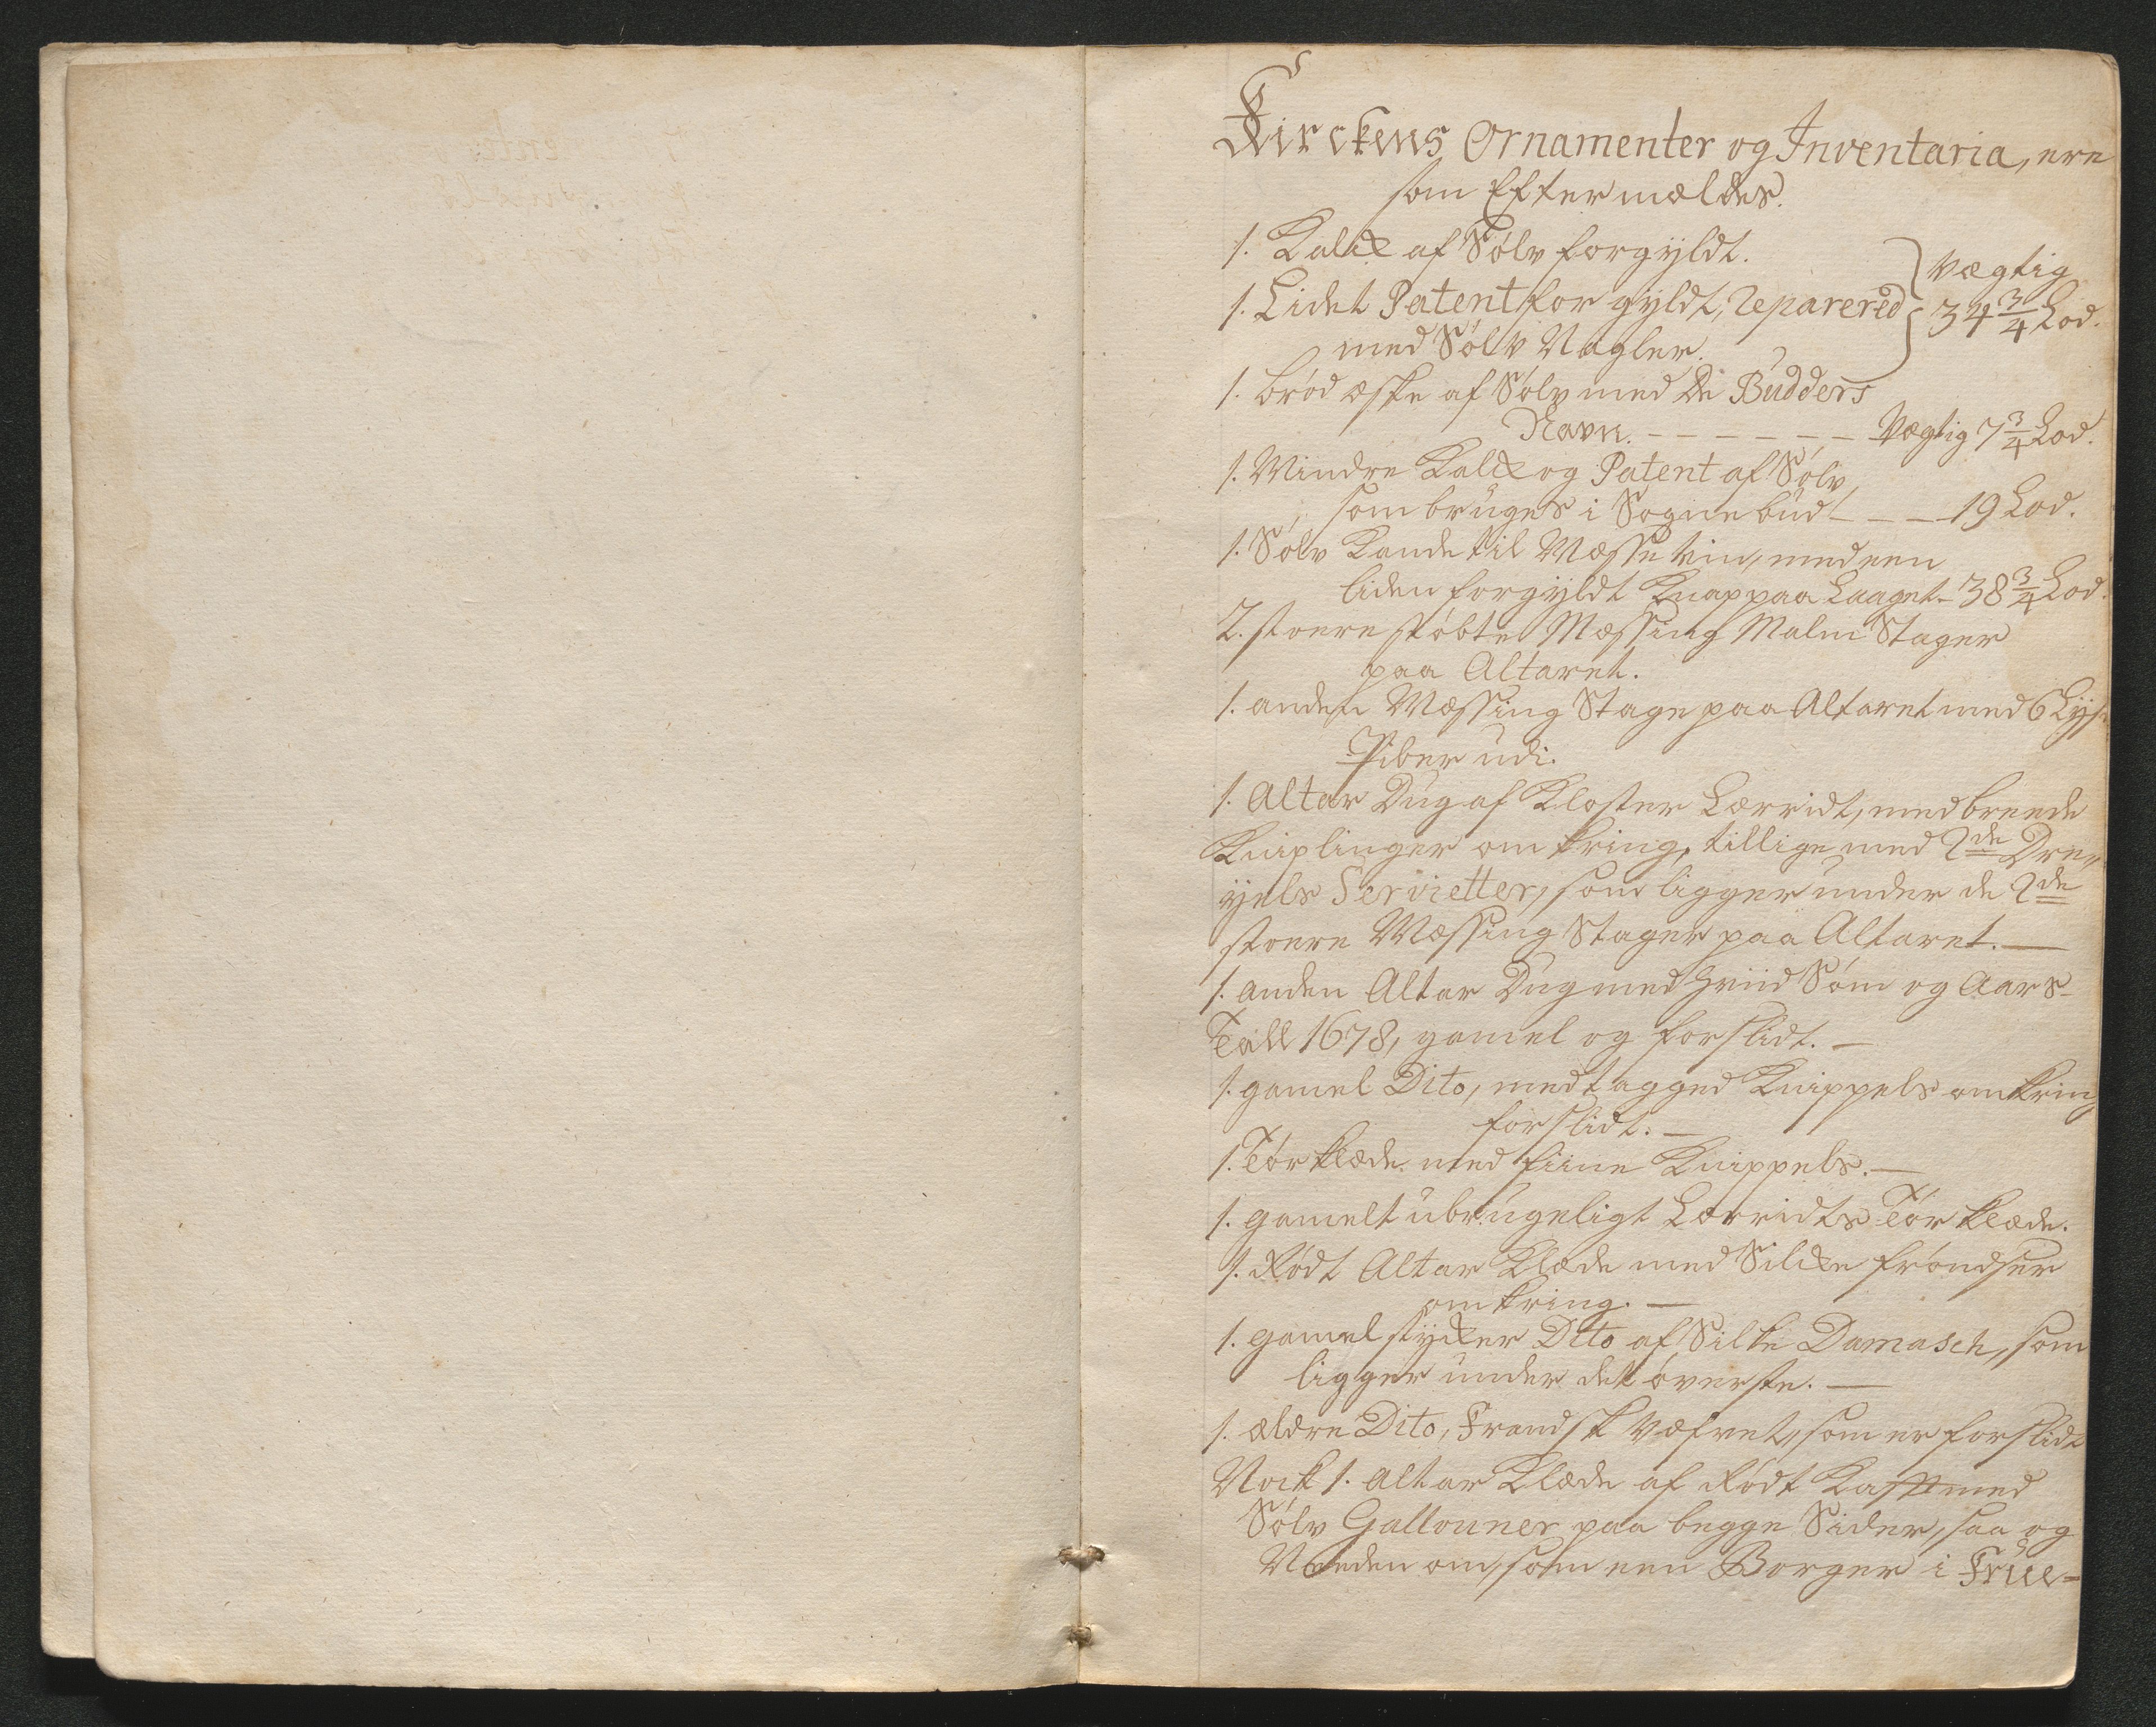 Kirckens Ornamenter og Inventaria, ere
som Eftermældes.
1. Kalck af Sølv forgyldt.
1. Lidet Patent forgyldt, reparered
med Sølv Nagler.
Vægtig
34 3/4 Lod.
1. Brød æske af Sølv med De Büdders
Navn. - - - - - - - Vægtig 7 3/4 Lod.
1. Mindre Kalck og Patent af Sølv,
som bruges i Sognebud - - - 19 Lod.
1. Sølv Kande til Messe Vin, med een
liden forgyldt Knap paa Laaget - 38 3/4 Lod.
2. stoere støbte Messing Malm Stager
paa Altaret.
1. anden Messing Stage paa Altaret med 6 Lyse
Piber udi.
1. Altar Dug af Kloster Lærridt, med breede
Kniplinger om kring, tillige med 2de Dre,,
yels Servietter, som ligger under de 2de
stoere Messing Stager paa Altaret. —
1. anden Altar Dug med Hviid Søm og Aars-
Tall 1678, gamel og forslidt. —
1. gamel Dito, med tagged Knippels omkring
forslidt. —
1. Tørklæde med fiine Knippels. —
1. gamelt ubrugeligt Lærridts Tørklæde.
1. Rødt Altar Klæde med Silcke frøndser
omkring. —
1. gamel stycker Dito af Silke Damasch, som
ligger under det øverste. —
1. ældre Dito, Frandsk Væfvet, som er forslidt
Nock 1. Altar Klæde af Rødt Kaffe med
Sølv Gallouner paa begge Sider, saa og
Neden om, som een Borger i Frue=